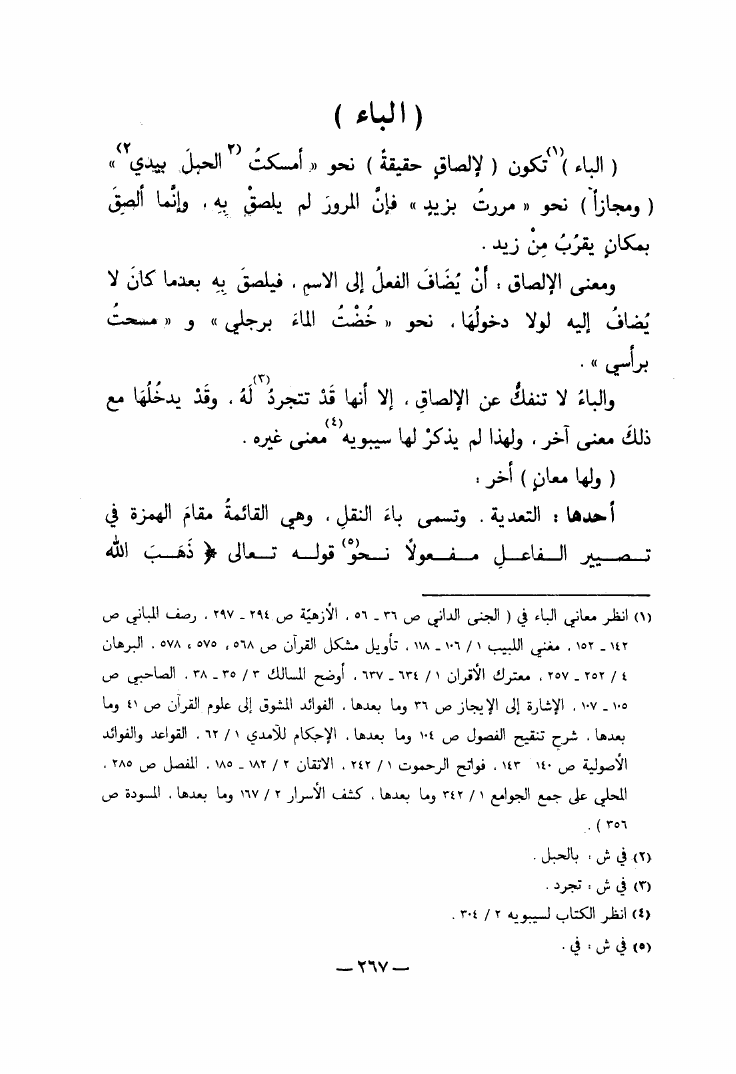 ( الباء )
( الباء )(١) تكون ( لإلصاقٍ حقيقةً ) نحو « أمسكتُ(٢) الحبلَ بيدي(٢) »
( ومجازاً ) نحو « مررتُ بزيدٍ » فإنَّ المرورَ لم يلصقْ بِهِ ، وإنَّما ألصِقَ
بمكانٍ يقرُبُ مِنْ زيد .
ومعنى الإلصاق : أنْ يُضَافَ الفعلُ إلى الاسمِ ، فيلصقَ بِهِ بعدَما كانَ لا
يُضافُ إليه لولا دخولُهَا ، نحو « خُضْتُ الماءَ برجلي » و « مسحتُ
برأسي » .
والباءُ لا تنفكُّ عن الإلصاقِ ، إلا أنها قَدْ تتجردُ(٣) لَهُ ، وقَدْ يدخُلُهَا مع
ذلكَ معنى آخر ، ولهذا لم يذكرْ لها سيبويه(٤) معنى غيره .
( ولها معانٍ ) أخر :
أحدها : التعدية . وتسمى باءَ النقلِ ، وهي القائمةُ مقامَ الهمزة في
تصيير الفاعلِ مفعولًا نحو(٥) قوله تعالى ﴿ ذَهَبَ الله
(١) انظر معاني الباء في ( الجنى الداني ص ٣٦ ـ ٥٦ ، الأزهيّة ص ٢٩٤ ـ ٢٩٧ ، رصف المباني ص
١٤٢ ـ ١٥٢ ، مغني اللبيب ١ / ١٠٦ ـ ١١٨ ، تأويل مشكل القرآن ص ٥٦٨ ، ٥٧٥ ، ٥٧٨ ، البرهان
٤ / ٢٥٢ ـ ٢٥٧ ، معترك الأقران ١ / ٦٣٤ ـ ٦٣٧ ، أوضح المسالك ٣ / ٣٥ ـ ٣٨ ، الصاحبي ص
١٠٥ ـ ١٠٧ ، الإشارة إلى الإيجاز ص ٣٦ وما بعدها ، الفوائد المشوق إلى علوم القرآن ص ٤١ وما
بعدها ، شرح تنقيح الفصول ص ١٠٤ وما بعدها ، الإحكام للآمدي ١ / ٦٢ ، القواعد والفوائد
الأصولية ص ١٤٠ ١٤٣ ، فواتح الرحموت ١ / ٢٤٢ ، الاتقان ٢ / ١٨٢ ـ ١٨٥ ، المفصل ص ٢٨٥ ،
المحلي على جمع الجوامع ١ / ٣٤٢ وما بعدها ، كشف الأسرار ٢ / ١٦٧ وما بعدها ، المسودة ص
٣٥٦ ) .
(٢) في ش : بالحبل .
(٣) في ش : تجرد .
(٤) انظر الكتاب لسيبويه ٢ / ٣٠٤ .
(٥) في ش : في .
— ٢٦٧ —